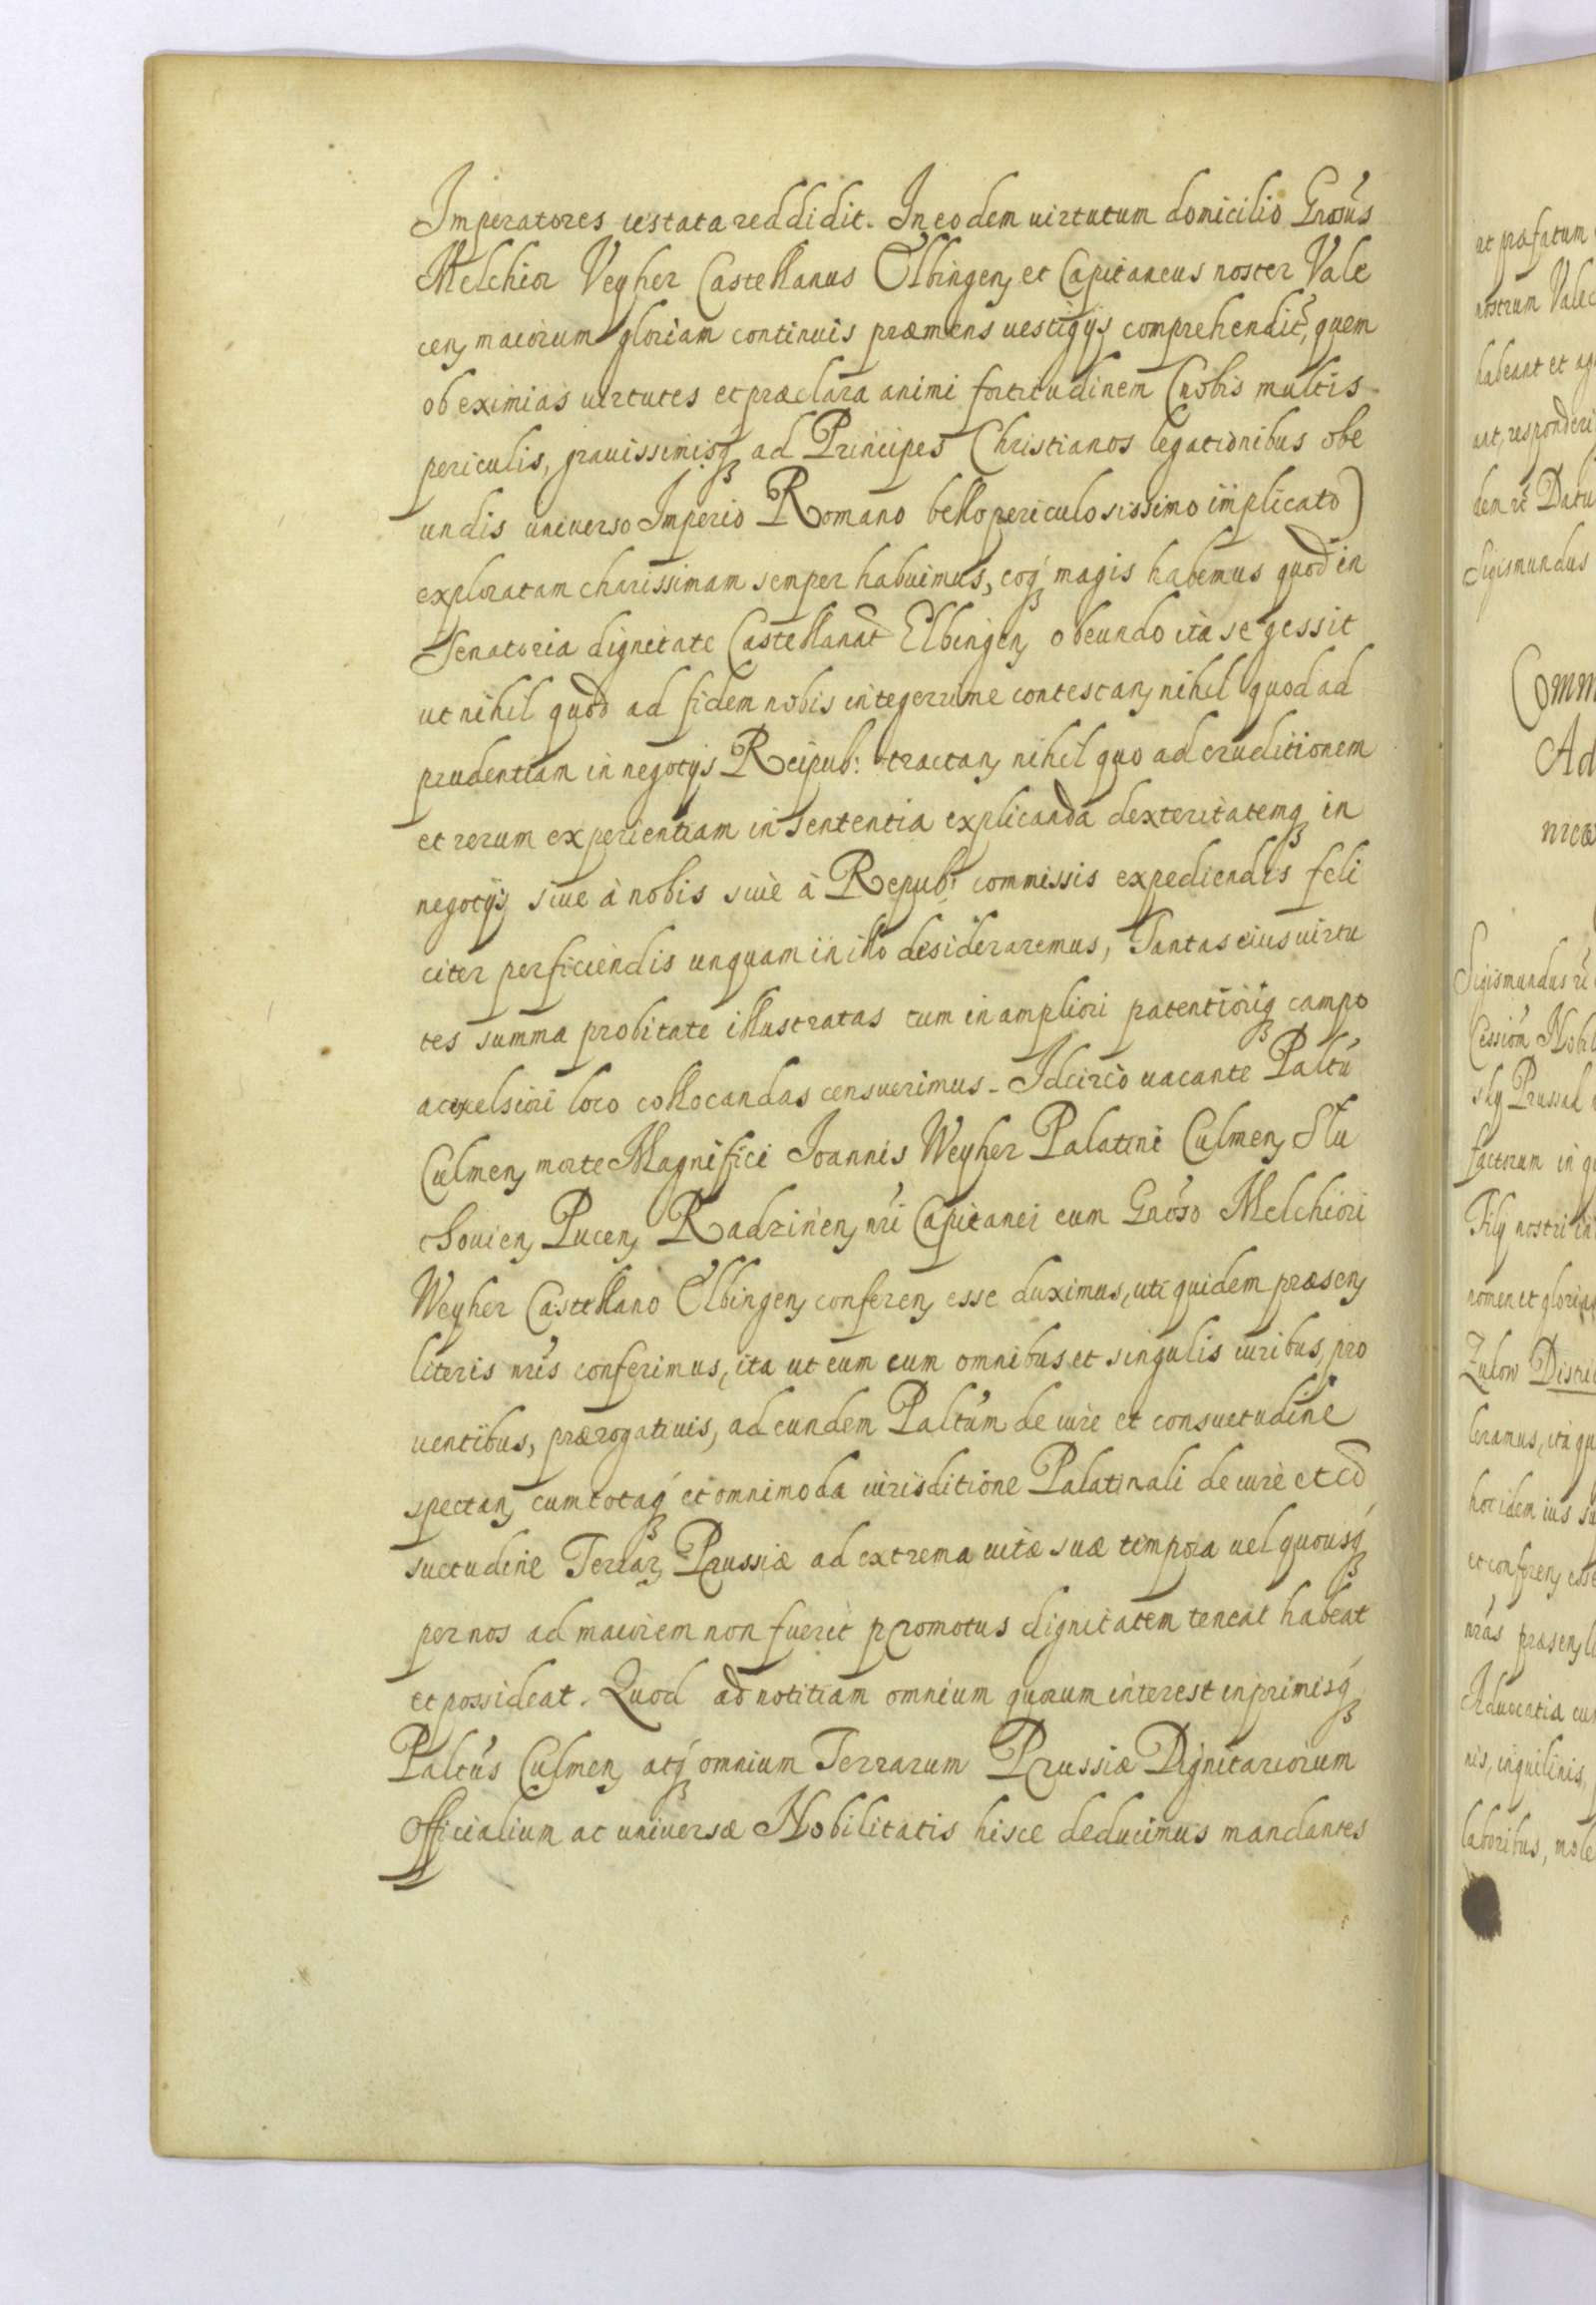 Imperatores testata reddidit. In eodem uirtutum domicilio Gnosus
Melchior Veyher Castellanus Elbingen, et Capitaneus noster Vale
cen, maiorum gloriam continuis præmens uestigijs comprehendit, quem
ob eximias uirtutes et præclara animi fortitudinem (nobis multis
periculis, grauissimisq ad Principes Christianos legationibus obe
undis uniuerso Imperio Romano bello periculosissimo implicato)
exploratam charissimam semper habuimus, eoq magis habemus quod in
Senatoria dignitate Castellanat Elbingen, obeundo ita se gessit
ut nihil quod ad fidem nobis integerrime contestan, nihil quod ad
prudentiam in negotijs Reipub: tractan, nihil quo ad eruditionem
et rerum experientiam in sententia explicanda dexteritatemq in
negotijs siue à nobis siue à Repub: commissis expediendis feli
citer perficiendis unquam in illo desideraremus, Tantas eius uirtu
tes summa probitate illustratas tum in ampliori patentioriq campo
ac excelsiori loco collocandas censuerimus. Idcirco uacante Paltu
Culmen, morte Magnifici Joannis Weyher Palatini Culmen, Slu
chouien, Pucen, Radzinen, nri Capitanei eum Gnoso Melchiori
Weyher Castellano Elbingen, conferen, esse duximus, uti quidem præsen,
literis nris conferimus, ita ut eum cum omnibus et singulis iuribus, pro
uentibus, prærogatiuis, ad eundem Paltum de iure et consuetudine
spectan, cum totaq et omnimoda iurisditione Palatinali de iure et co
suetudine Terrar, Prussiæ ad extrema uitæ suæ tempora uel quousq
per nos ad maiorem non fuerit promotus dignitatem teneat habeat
et possideat. Quod ad notitiam omnium quorum interest inprimisq
Paltus Culmen, atq omnium Terrarum Prussiæ Dignitariorum
Officialium ac uniuersæ Nobilitatis hisce deducimus mandantes